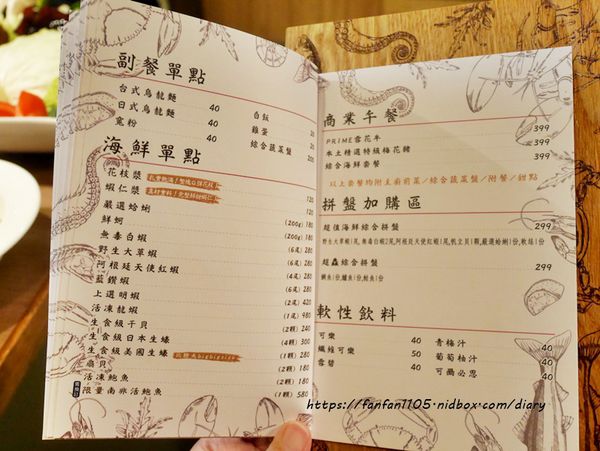 副餐單點
台式烏龍麵 40
日式烏龍麵 40
寬粉 40
白飯
雞蛋 20
綜合蔬菜盤 200
海鮮單點
花枝漿 120
蝦仁漿 120
嚴選蛤蜊 (200g) 180
鮮蚵 (200g) 180
無毒白蝦 (6尾)
野生大草蝦
阿根廷天使紅蝦
藍鑽蝦
上選明蝦
活凍龍蝦
生食級干貝
生食級日本生蠔
生食級美國生蠔
扇貝 (1顆)
活凍鮑魚
限量南非活鮑魚 (1顆) 580
商業午餐
PRIME雪花牛 399
本土精選特級梅花豬 399
綜合海鮮套餐 399
以上套餐均附主廚前菜/綜合蔬菜盤/附餐/甜點
拼盤加購區
超值海鮮綜合拼盤 299
野生大草蝦1尾,無毒白蝦2尾,阿根廷天使紅蝦1尾,帆立貝1顆,嚴選蛤蜊1份,軟絲1份
超蟲綜合拼盤 299
鯛魚1份,鱸魚1份,鮭魚1份
軟性飲料
可樂 40
纖維可樂 50
雪碧 40
青梅汁 40
葡萄柚汁 40
可爾必思 40
https://fanfan1105.nidbox.com/diary